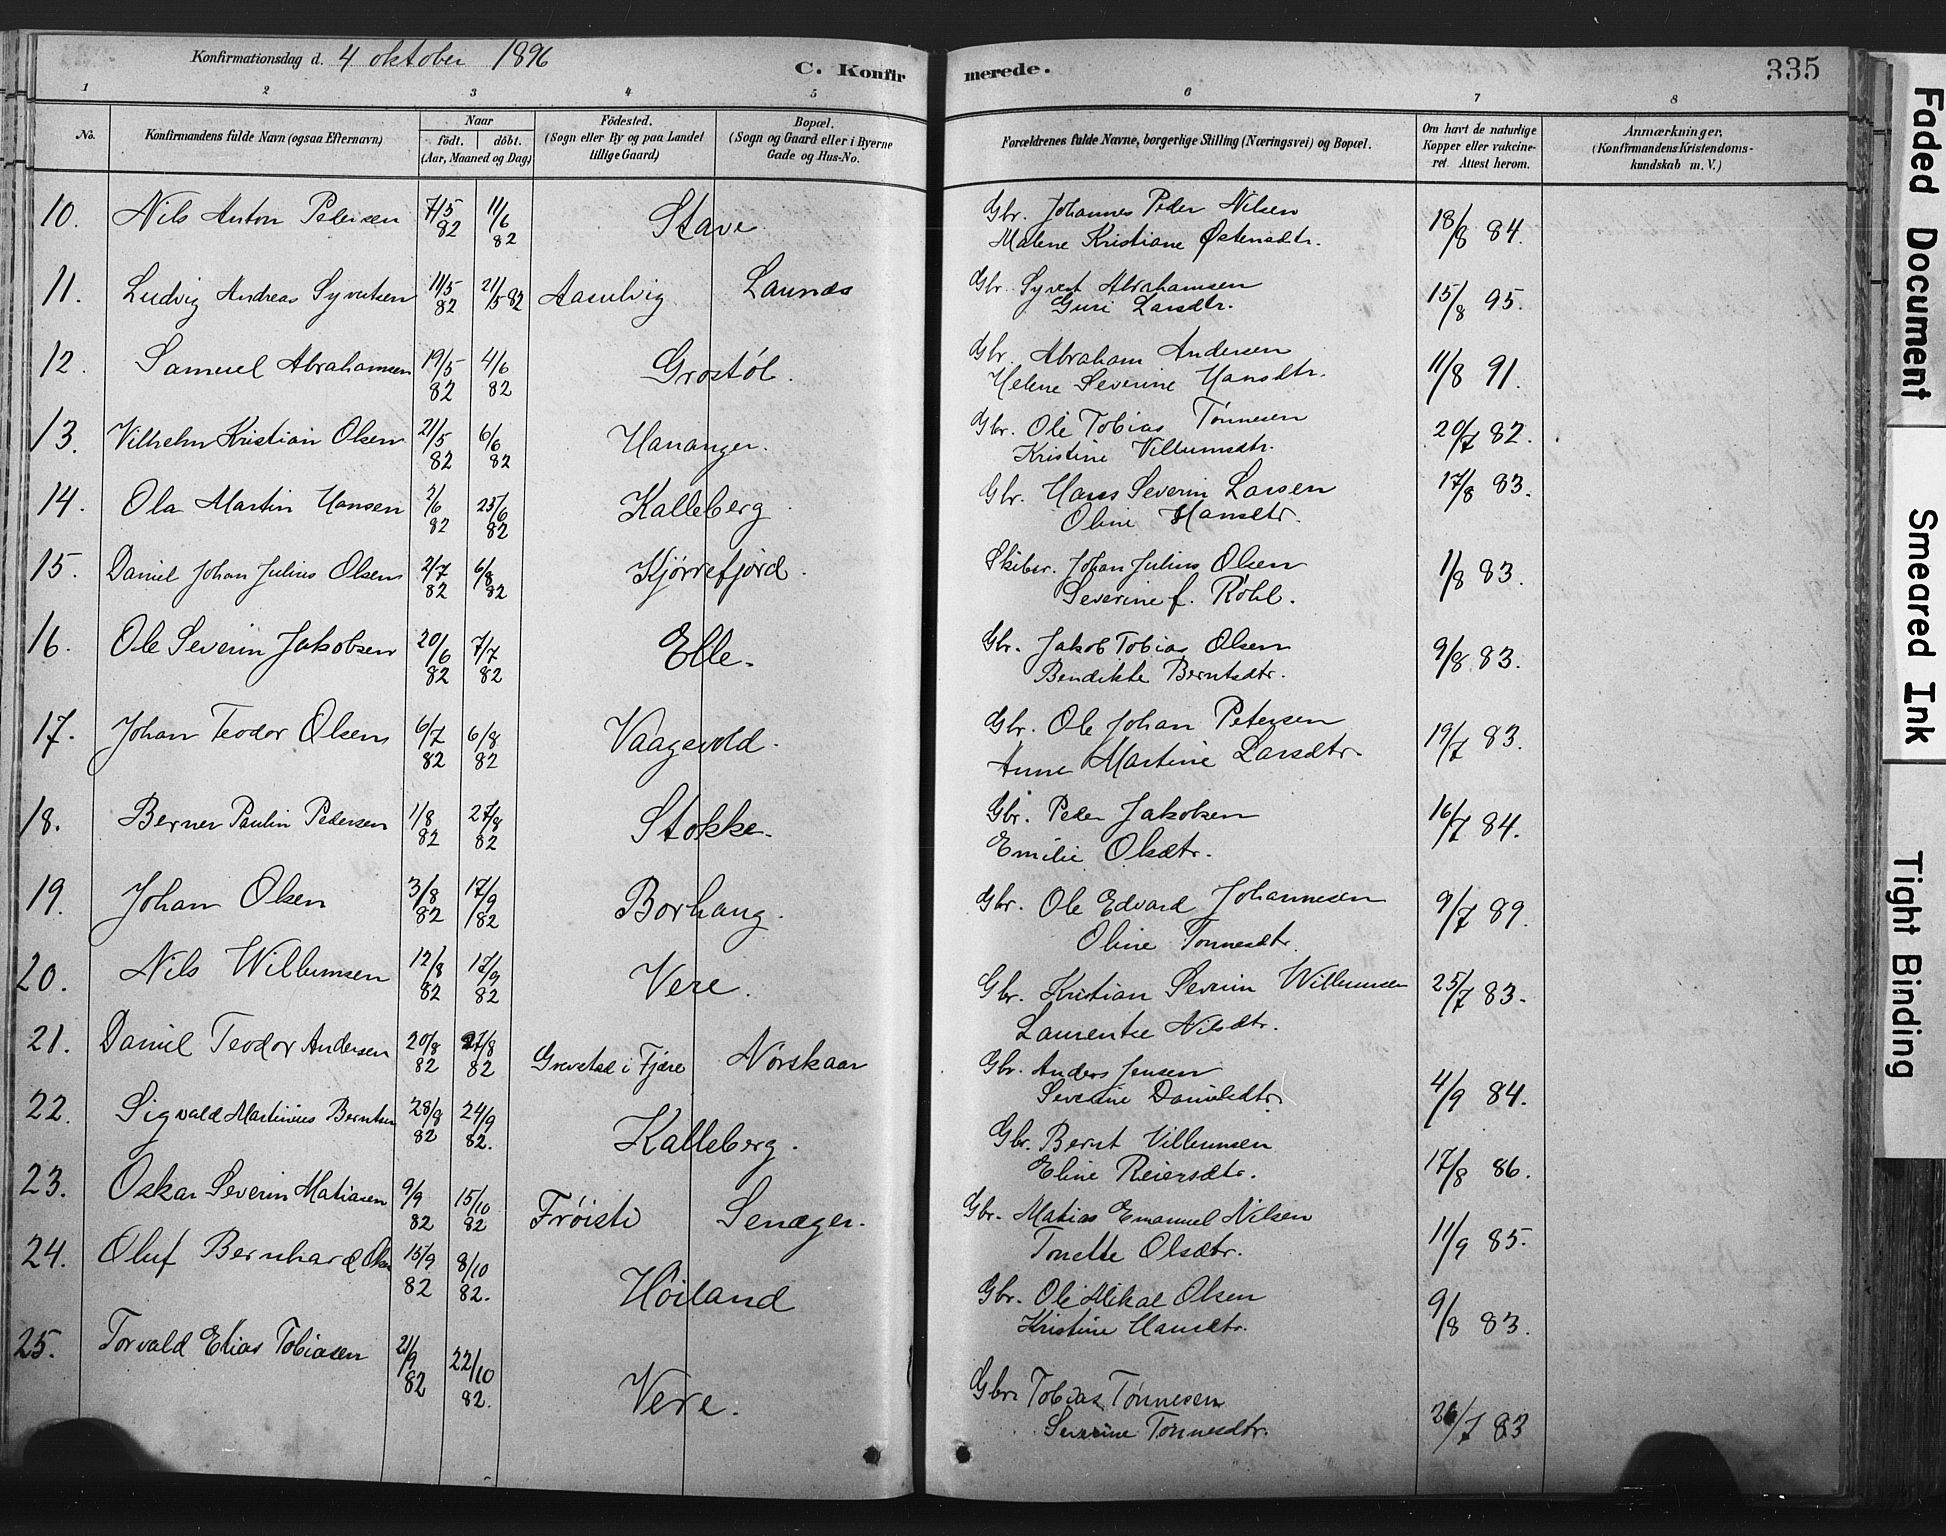 Konfirmationsdag d. 4 oktober 1896
C. Konfirmerede.
335
1 2 3 4 5 6 7 8
No.
Konfirmandens fulde Navn (ogsaa Efternavn)
Naar
født. døbt.
(Aar, Maaned og Dag)
Fødested.
(Sogn eller By og paa Landet
tillige Gaard)
Bopæl.
(Sogn og Gaard eller i Byerne
Gade og Hus-No.
Forældrenes fulde Navne, borgerlige Stilling (Næringsvei) og Bopæl.
Om havt de naturlige
Kopper eller vakcine-
ret. Attest herom.
Anmærkninger,
(Konfirmandens Kristendoms-
kundskab m. V.)
10. Nils Anton Pedersen 7/5 82 11/6 82 Stave. Gbr. Johannes Peder Nilsen 18/8 84.
Malene Kristiane Østensdtr.
11. Ludvig Andreas Syvertsen 11/5 82 21/5 82 Aamlvig Launes Gbr. Syvert Abrahamsen 15/8 95.
Guri Larsdtr.
12. Samuel Abrahamsen 19/5 82 4/6 82 Grostøl. Gbr. Abraham Andersen 11/8 91.
Helene Severine Hansdtr.
13. Vilhelm Kristian Olsen 21/5 82 6/6 82 Hananger. Gbr. Ole Tobias Tønnesen 20/7 82.
Kristine Villumsdtr.
14. Ola Martin Hansen 2/6 82 25/6 82 Kalleberg. Gbr. Hans Severin Larsen 17/8 83.
Oline Hansdtr.
15. Daniel Johan Julius Olsen 2/7 82 6/8 82 Kjørrefjord. Skibsr. Johan Julius Olsen 1/8 83.
Severine f. Röhl.
16. Ole Severin Jakobsen 20/6 82 7/7 82 Elle. Gbr. Jakob Tobias Olsen 9/8 83.
Bendikte Berntsdtr.
17. Johan Teodor Olsen 6/7 82 6/8 82 Vaagsvold. Gbr. Ole Johan Petersen 19/7 83.
Anne Martine Larsdtr.
18. Berner Paulin Pedersen 1/8 82 27/8 82 Stokke. Gbr. Peder Jakobsen 16/7 84.
Emilie Olsdtr.
19. Johan Olsen 3/8 82 17/9 82 Borhaug. Gbr. Ole Edvard Johannesen 9/7 89.
Oline Tønnesdtr.
20. Nils Willumsen 12/8 82 17/9 82 Vere. Gbr. Kristian Severin Willumsen 25/7 83.
Laurentse Nilsdtr.
21. Daniel Teodor Andersen 20/8 82 27/8 82 Grevstad i Fjære Nørskaar Gbr. Anders Jensen 4/9 84.
Severine Danieldtr.
22. Sigvald Martinius Berntsen 28/8 82 24/9 82. Kalleberg. Gbr. Bernt Villumsen 17/8 86.
Eline Reiersdtr.
23. Oskar Severin Matiasen 9/9 82 15/10 82 Frøisti Senæger. Gbr. Matias Emanuel Nilsen 11/9 85.
Tonette Olsdtr.
24. Oluf Bernhard Olsen 15/9 82 8/10 82. Høiland Gbr. Ole Mikal Olsen 9/8 83.
Kristine Hansdtr.
25. Torvald Elias Tobiasen 21/9 82 22/10 82. Vere. Gbr. Tobias Tønnesen 26/7 83
Severine Tønnesdtr.
Faded Document
Smeared Ink
Tight Binding